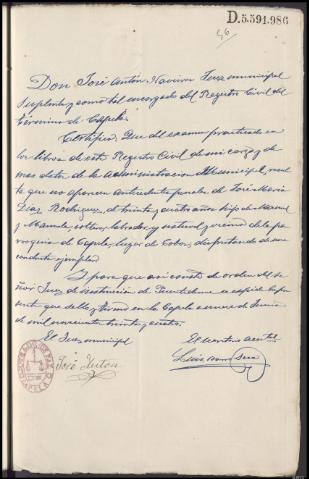 D.5.591.986
Don José Antón Juez municipal
suplente y como tal encargado del Registro Civil del
término de Capela.
Certifico: Que del examen practicado en
los libros de este Registro Civil de mi cargo y de
más datos de la administración Municipal, resul
ta que no aparecen antecedentes penales de José María
Díaz Rodríguez, de treinta y cuatro años hijo de Manuel
y Manuela, soltero, labrador y natural y vecino de la pa
rroquia de Capela, lugar de disfrutando de una
conducta ejemplar.
Y para que así conste de orden del Se
ñor Juez de instrucción de Puentedeume expido la pre
sente que sello y firmo en la Capela a de Junio
de mil novecientos treinta y cuatro.
El Juez municipal
El Secretario
José Antón
Luis